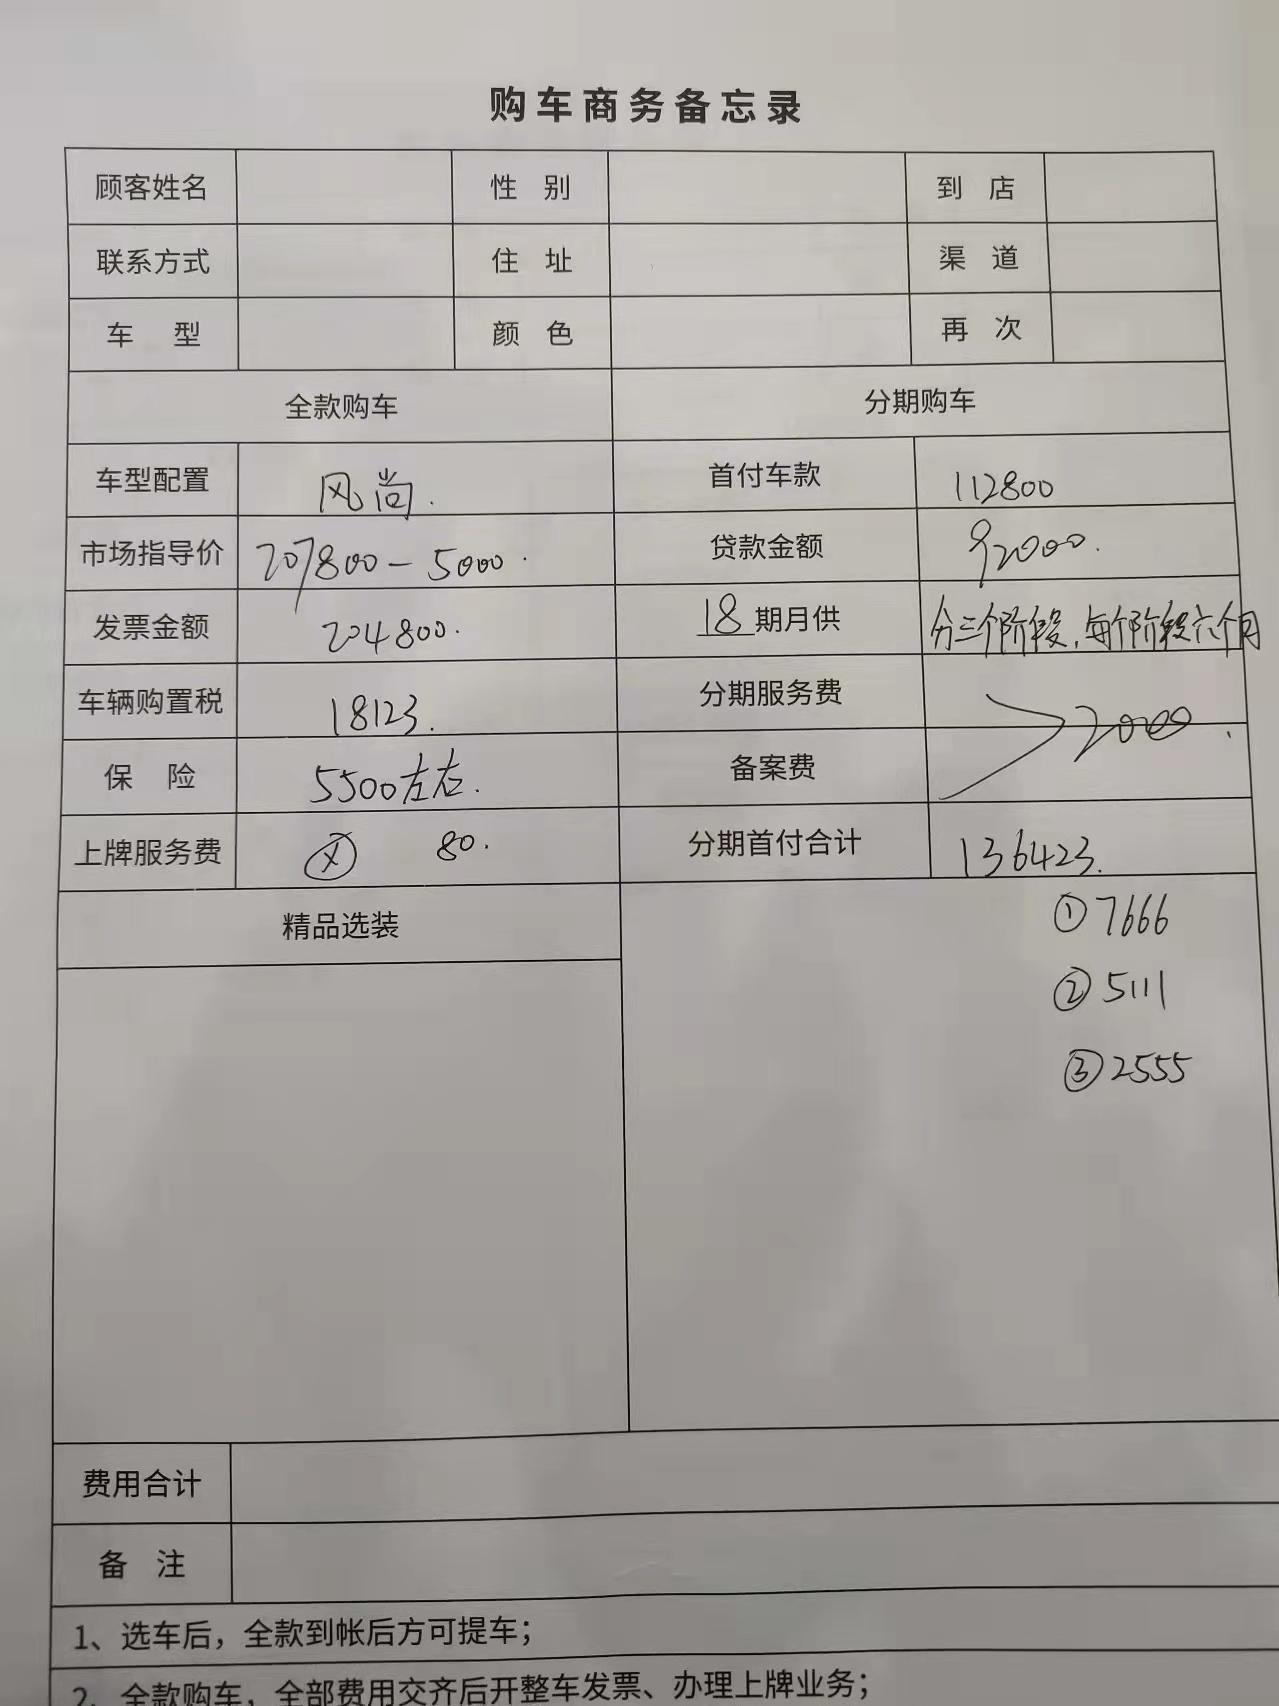 购车商务备忘录
顾客姓名 性 别 到 店
联系方式 住 址 渠 道
车 型 颜 色 再 次
全款购车 分期购车
车型配置 风尚. 首付车款 112800
市场指导价 207800-5000. 贷款金额 92000.
发票金额 204800. 18期月供 分三个阶段,每个阶段六个月
车辆购置税 18123. 分期服务费
2000
保 险 5500左右. 备案费
上牌服务费 80. 分期首付合计 136423.
精品选装
①7666
②5111
③2555
费用合计
备 注
1、选车后，全款到帐后方可提车；
2、全款购车，全部费用交齐后开整车发票、办理上牌业务；